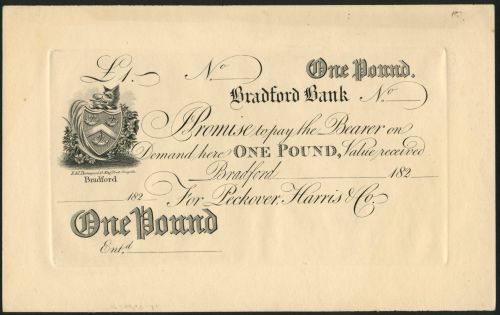 £1. No One Pound.
Bradford Bank No
Promise to pay the Bearer on
Demand, here ONE POUND, Value received
Bradford
Bradford 182
182 For Peckover, Harris & Co.
One Pound
Ent.d